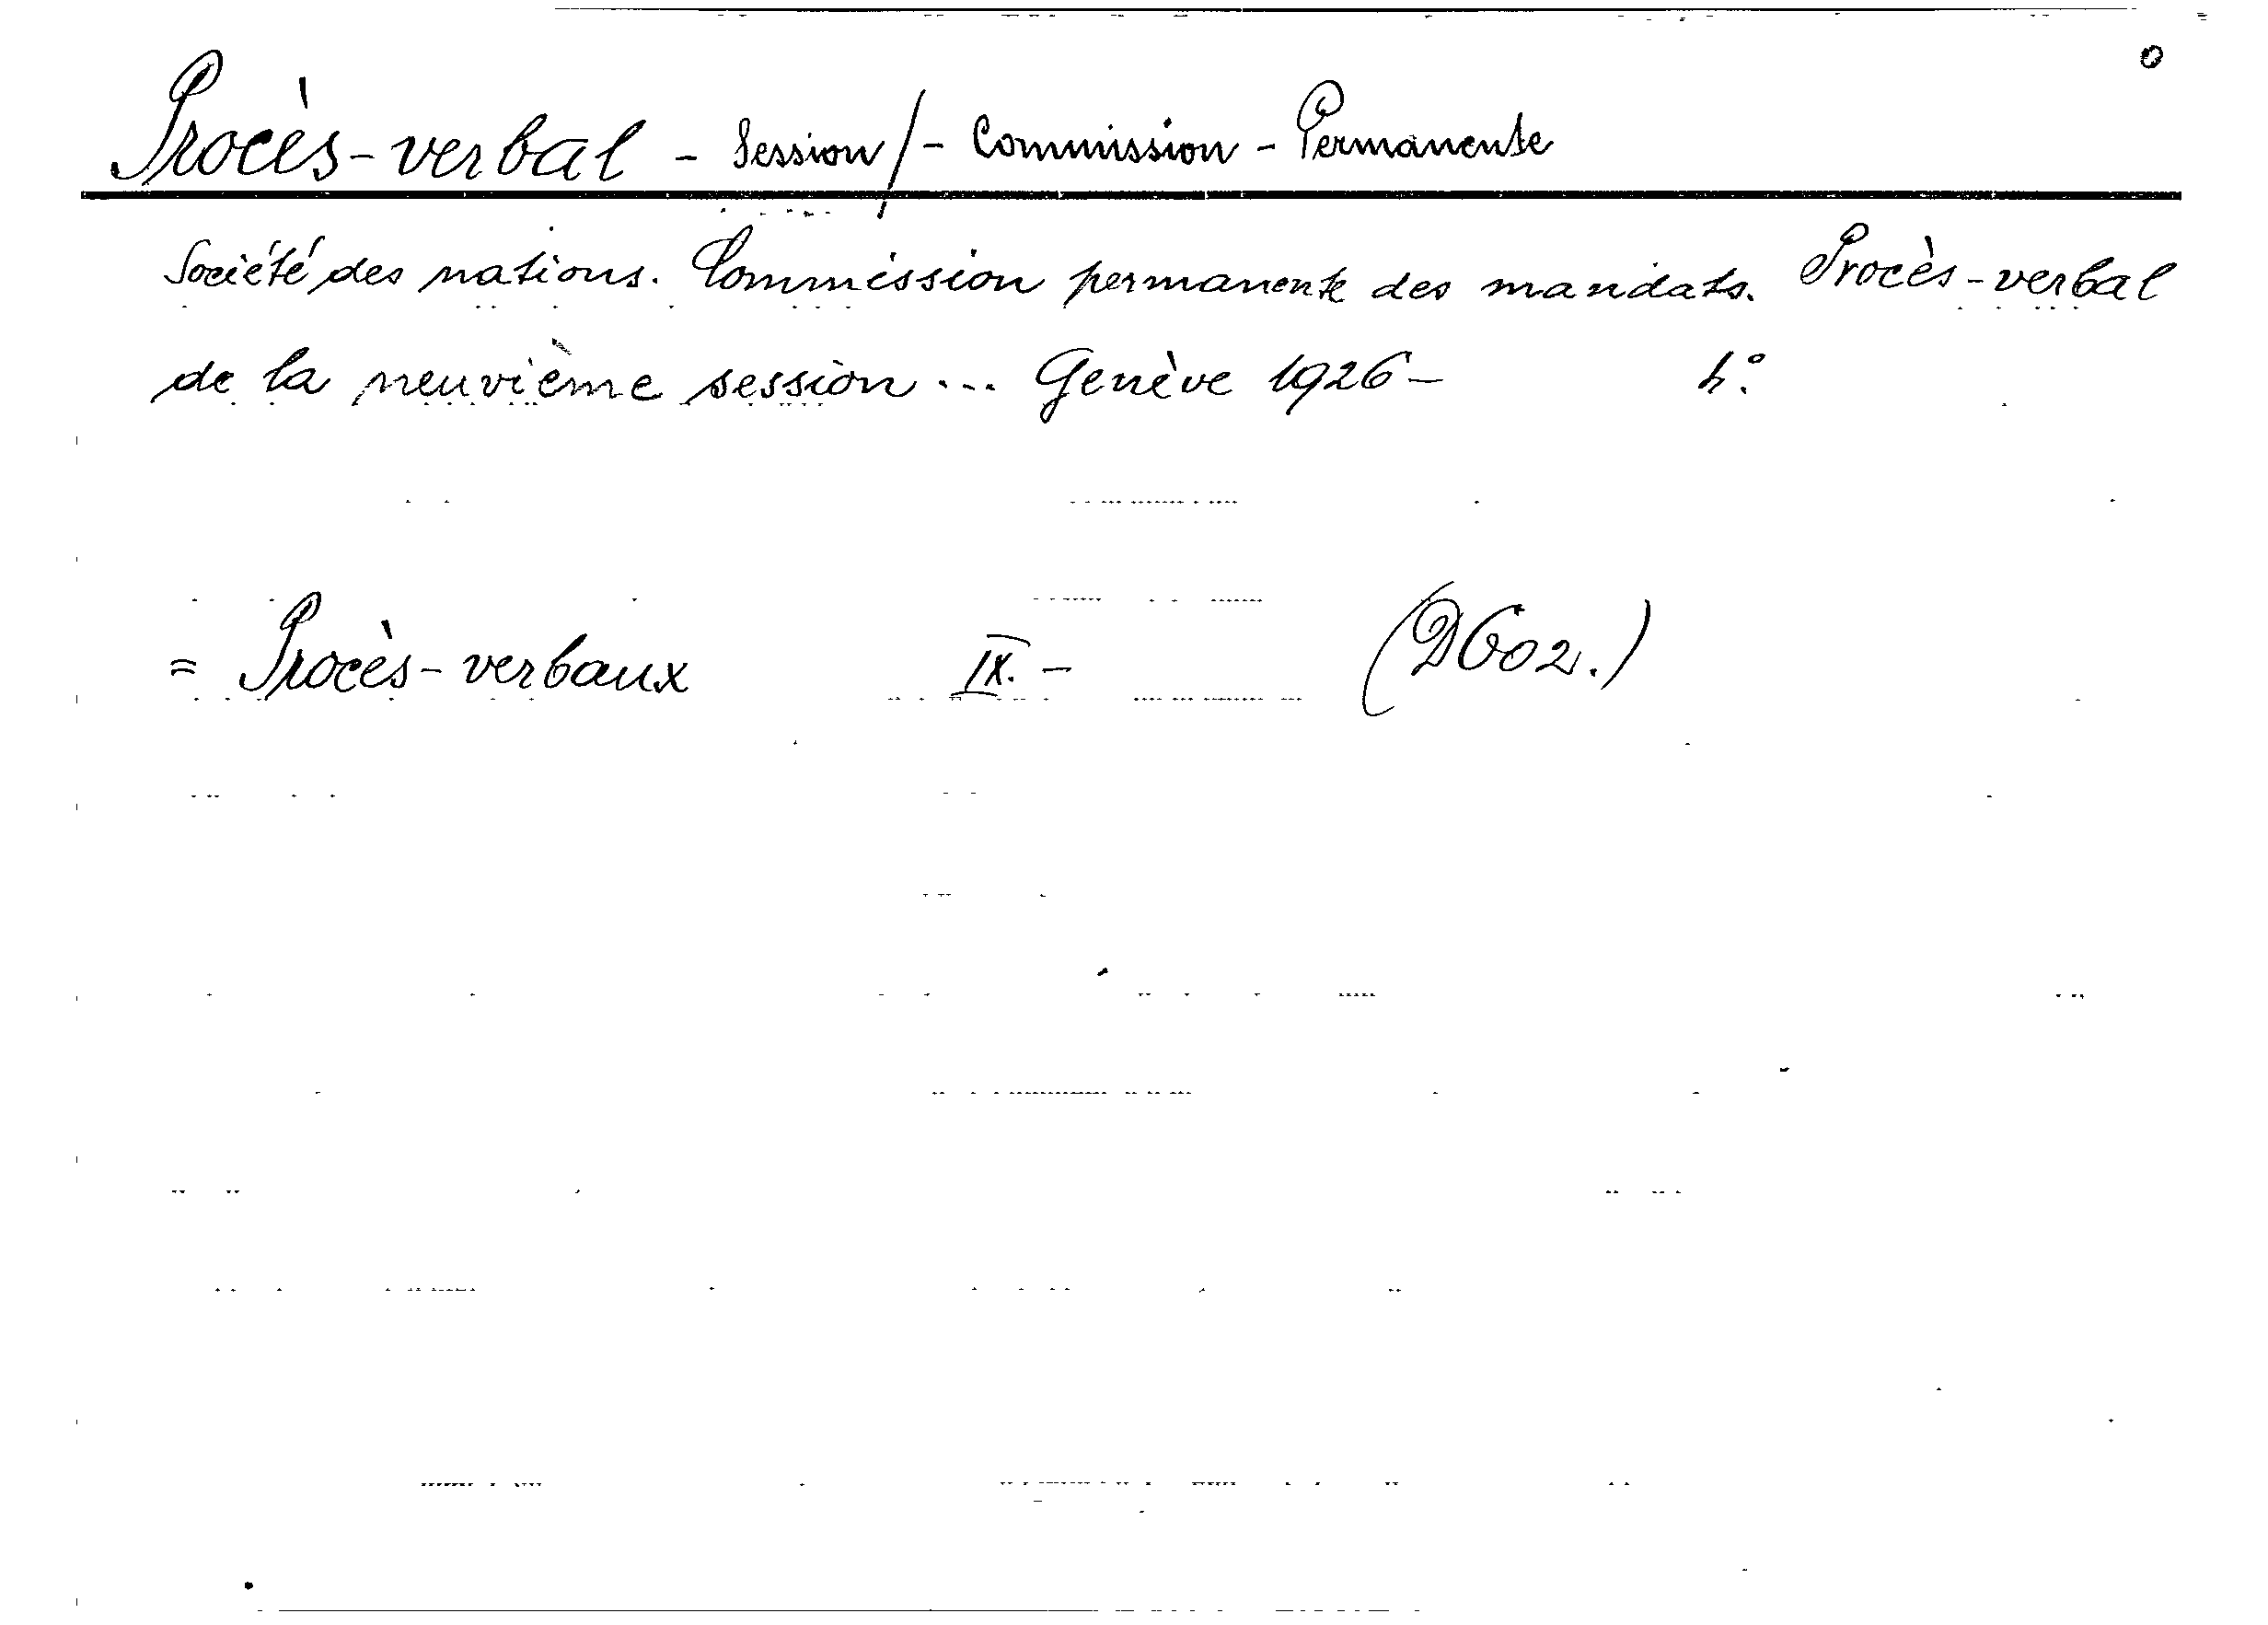 Procès-verbal - Session/- Commission - Permanente
Société des nations. Commission permanente des mandats. Procès-verbal
de la neuvième session ... Genève 1926- 4°.
= Procès-verbaux IX. - (D602.)